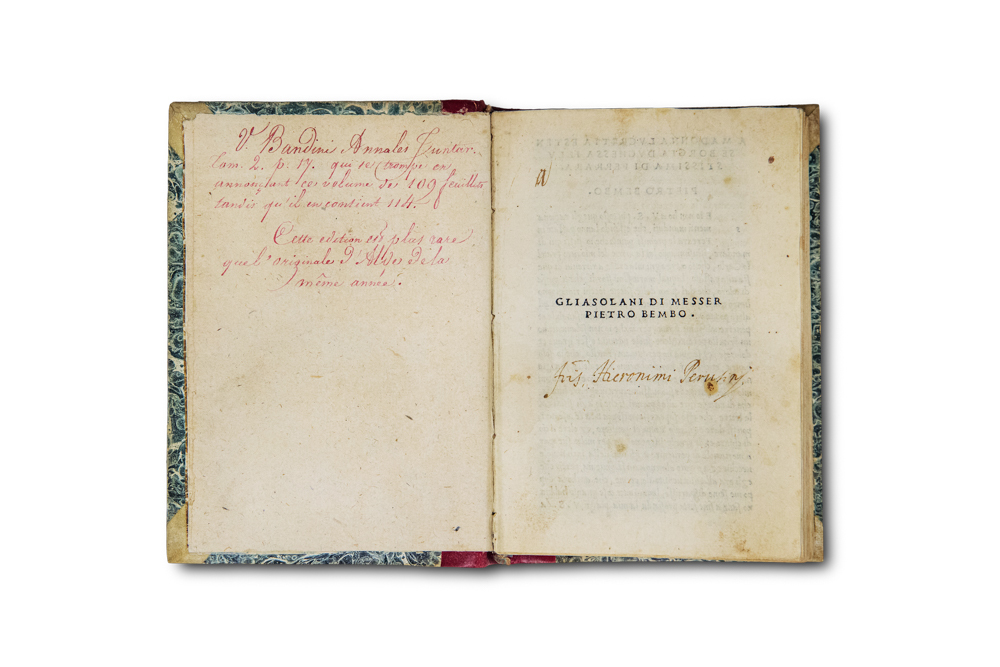 V. Bandini Annales Juntar.
Tom. 2. p. 17. qui se trompe en
annonçant ce volume de 109 feuillets
tandis qu'il en contient 114.
Cette edition est plus rare
que l'originale d'Aldes de la
même année.
a
GLIASOLANI DI MESSER
PIETRO BEMBO.
fris Hieronimi